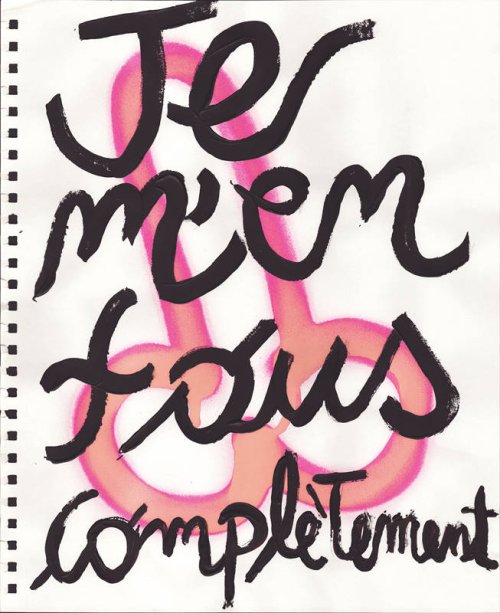 Je
m'en
fous
complèTement